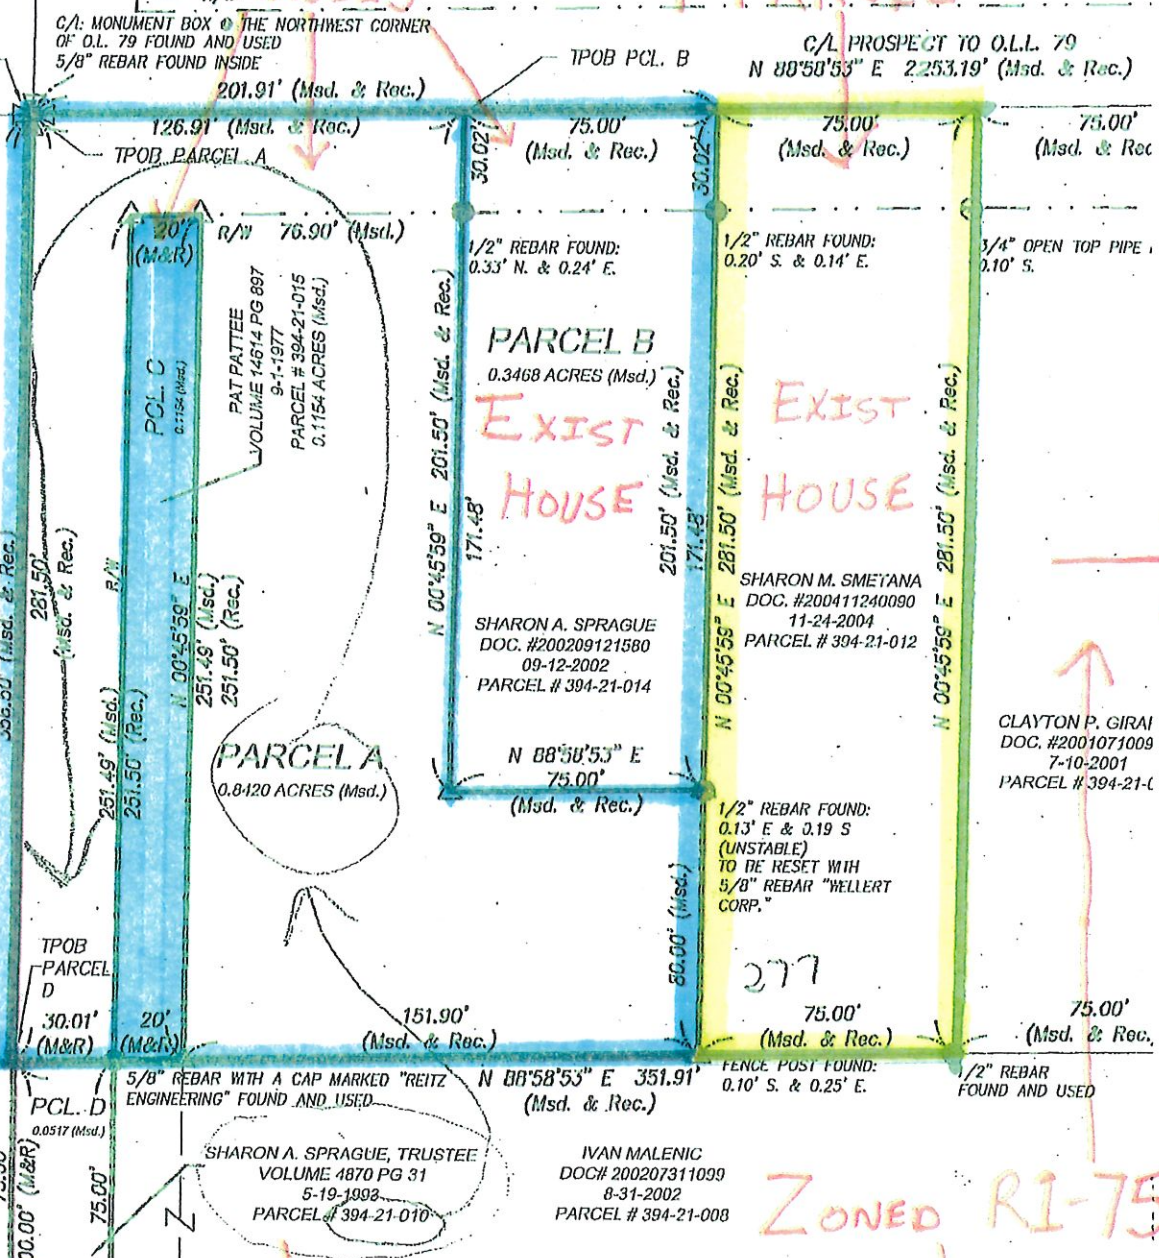 C/L: MONUMENT BOX @ THE NORTHWEST CORNER
OF O.L. 79 FOUND AND USED
5/8" REBAR FOUND INSIDE
TPOB PCL. B
C/L PROSPECT TO O.L.L. 79
N 88°58'53" E 2253.19' (Msd. & Rec.)
201.91' (Msd. & Rec.)
126.91' (Msd. & Rec.)
75.00'
(Msd. & Rec.)
75.00'
(Msd. & Rec.)
75.00'
(Msd. & Rec
TPOB PARCEL A
30.02'
30.02'
20'
(M&R)
R/W 76.90' (Msd.)
1/2" REBAR FOUND:
0.33' N. & 0.24' E.
1/2" REBAR FOUND:
0.20' S. & 0.14' E.
3/4" OPEN TOP PIPE
0.10' S.
PCL. C
0.1154 (Msd.)
PAT PATTEE
VOLUME 14614 PG 897
9-1-1977
PARCEL # 394-21-015
0.1154 ACRES (Msd.)
PARCEL B
0.3468 ACRES (Msd.)
EXIST
HOUSE
EXIST
HOUSE
N 00°45'59" E 201.50' (Msd. & Rec.)
171.48'
201.50' (Msd. & Rec.)
171.48'
N 00°45'59" E 281.50' (Msd. & Rec.)
N 00°45'59" E 281.50' (Msd. & Rec.)
281.50'
(Msd. & Rec.)
(Msd. & Rec.)
R/W
N 00°45'59" E
251.49' (Msd.)
251.50' (Rec.)
251.49' (Msd.)
251.50' (Rec.)
SHARON A. SPRAGUE
DOC. #200209121580
09-12-2002
PARCEL # 394-21-014
SHARON M. SMETANA
DOC. #200411240090
11-24-2004
PARCEL # 394-21-012
CLAYTON P. GIRA
DOC. #2001071009
7-10-2001
PARCEL # 394-21-0
PARCEL A
0.8420 ACRES (Msd.)
N 88°58'53" E
75.00'
(Msd. & Rec.)
1/2" REBAR FOUND:
0.13' E & 0.19 S
(UNSTABLE)
TO BE RESET WITH
5/8" REBAR "WELLERT
CORP."
80.00' (Msd.)
277
TPOB
PARCEL
D
30.01'
(M&R)
20'
(M&R)
151.90'
(Msd. & Rec.)
75.00'
(Msd. & Rec.)
75.00'
(Msd. & Rec.
5/8" REBAR WITH A CAP MARKED "REITZ
ENGINEERING" FOUND AND USED
N 88°58'53" E 351.91'
(Msd. & Rec.)
FENCE POST FOUND:
0.10' S. & 0.25' E.
1/2" REBAR
FOUND AND USED
PCL. D
0.0517 (Msd.)
00.00' (M&R)
75.00'
SHARON A. SPRAGUE, TRUSTEE
VOLUME 4870 PG 31
5-19-1998
PARCEL # 394-21-010
IVAN MALENIC
DOC# 200207311099
8-31-2002
PARCEL # 394-21-008
ZONED R1-75